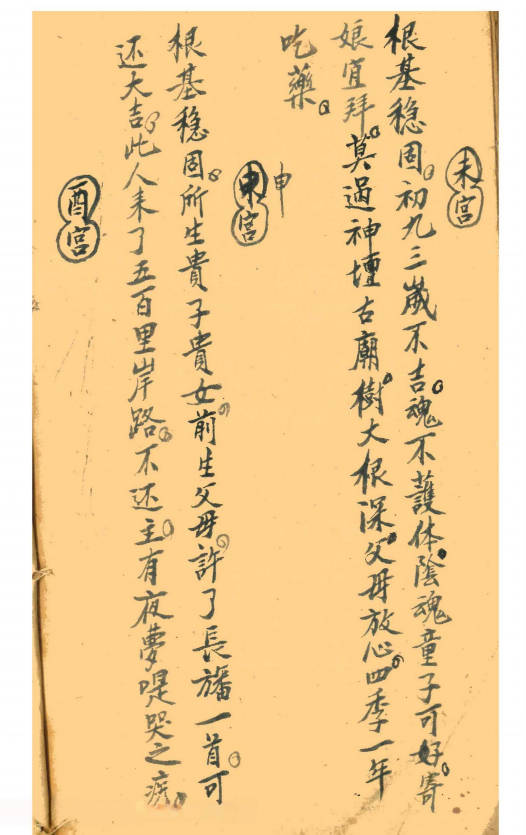 未宮
根基穩固。初九三歲不吉。魂不護体。陰魂童子可好。寄
娘宜拜。莫過神壇古廟。樹大根深。父母放心。四季一年
吃藥。
申
申宮
根基穩固。所生貴子貴女。前生父母。許了長旛一首。可
还大吉。此人来了五百里岸路。不还。主有夜夢啼哭之疾。
酉宮